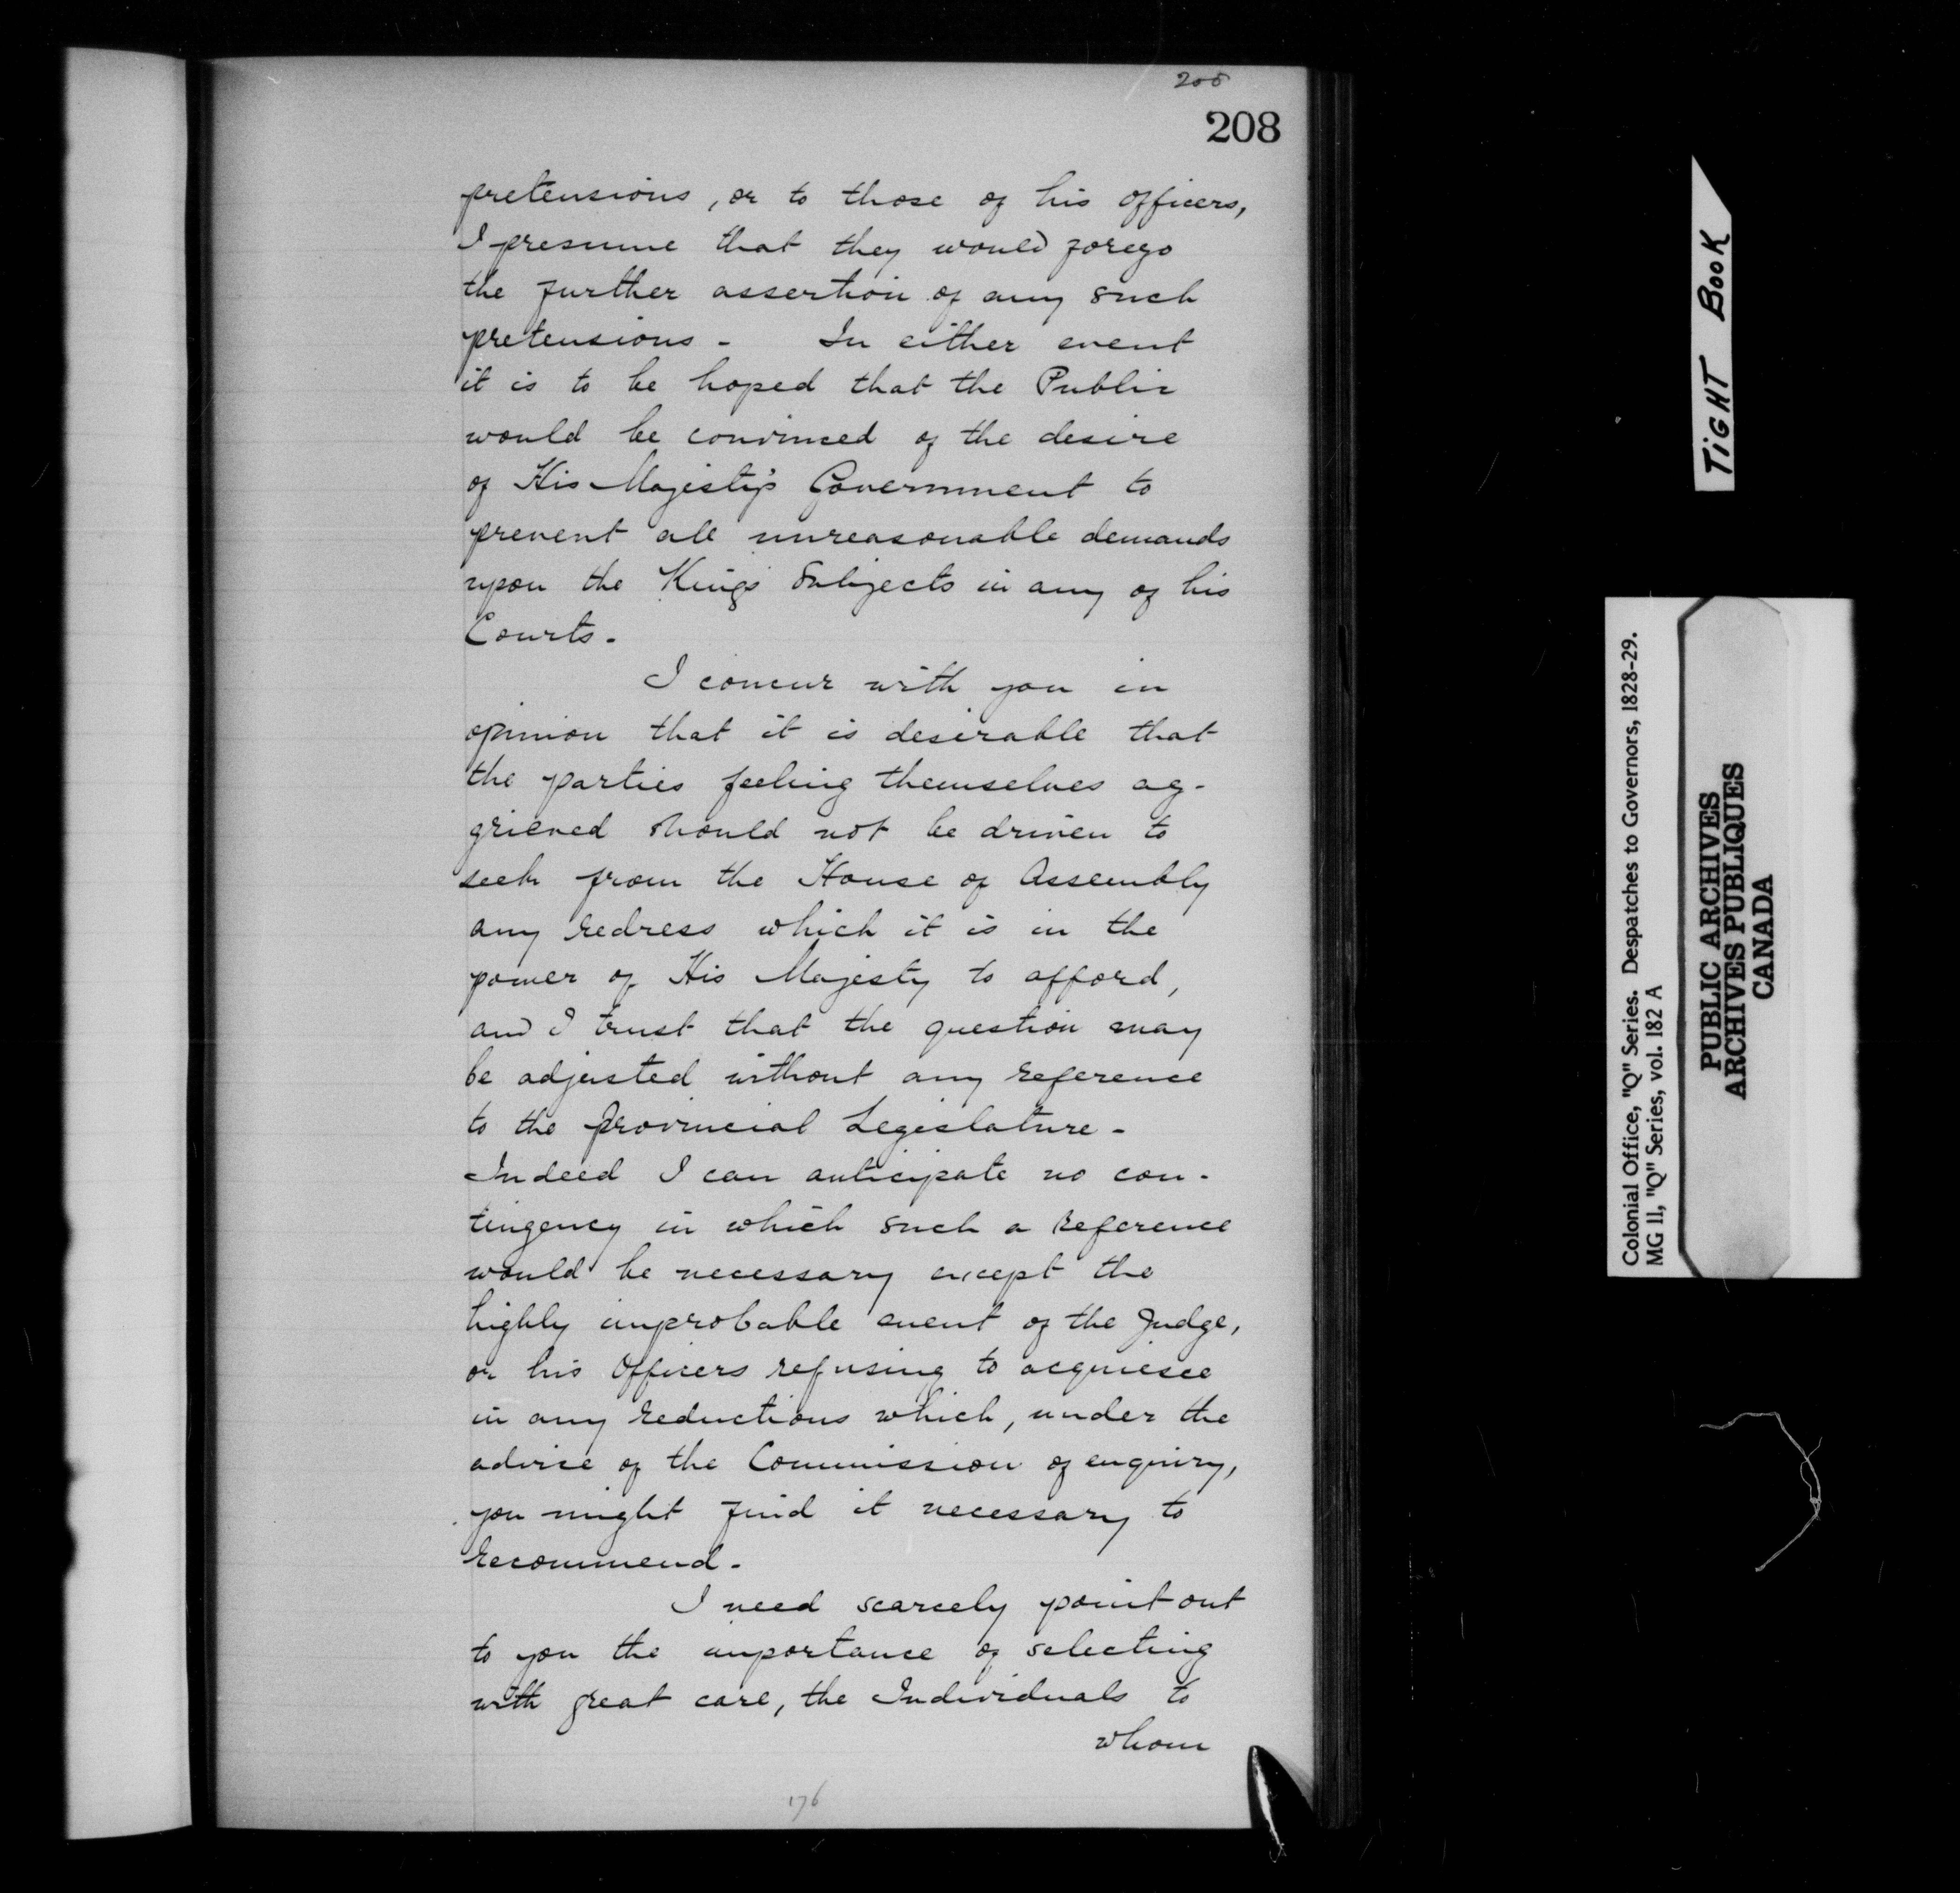 205
208
pretensions, or to those of his officers,
I presume that they would forego
the further assertion of any such
pretensions - In either event
it is to be hoped that the Public
would be convinced of the desire
of His Majesty's Government to
prevent all unreasonable demands
upon the Kings Subjects in any of his
Courts.
I concur with you in
opinion that it is desirable that
the parties feeling themselves ag-
grieved should not be driven to
seek from the House of Assembly
any redress which it is in the
power of His Majesty to afford,
and I trust that the question may
be adjusted without any reference
to the Provincial Legislature -
Indeed I can anticipate no con-
tingency in which such a reference
would be necessary except the
highly improbable event of the Judge,
or his Officers refusing to acquiesce
in any reductions which, under the
advice of the Commission of enquiry,
you might find it necessary to
recommend -
I need scarcely point out
to you the importance of selecting
with great care, the Individuals to
whom
176
TIGHT BOOK
Colonial Office, "Q" Series. Despatches to Governors, 1828-29.
MG 11, "Q" Series, vol. 182 A
PUBLIC ARCHIVES
ARCHIVES PUBLIQUES
CANADA